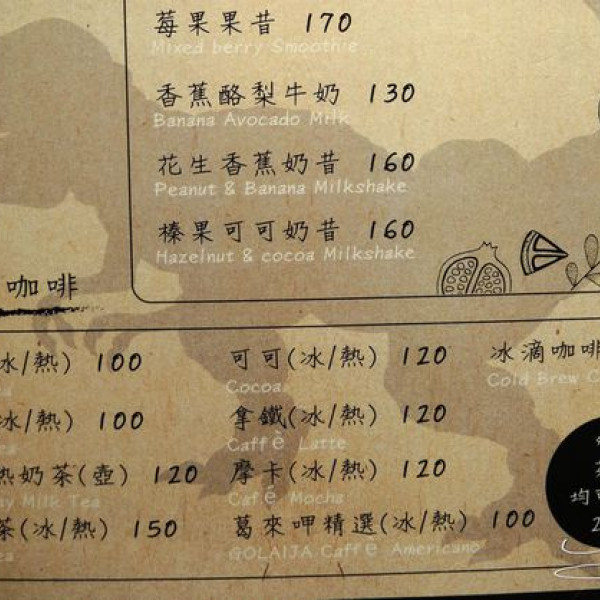 莓果果昔 170
Mixed berry Smoothie
香蕉酪梨牛奶 130
Banana Avocado Milk
花生香蕉奶昔 160
Peanut & Banana Milkshake
榛果可可奶昔 160
Hazelnut & cocoa Milkshake
咖啡
冰/熱) 100
可可(冰/熱) 120
冰滴咖啡
Cocoa
Cold Brew C
冰/熱) 100
拿鐵(冰/熱) 120
Caffè Latte
熱奶茶(壺) 120
摩卡(冰/熱) 120
Milk Tea
Cafè Mocha
茶(冰/熱) 150
葛來呷精選(冰/熱) 100
GOLAIJA Caffè Americano
均可